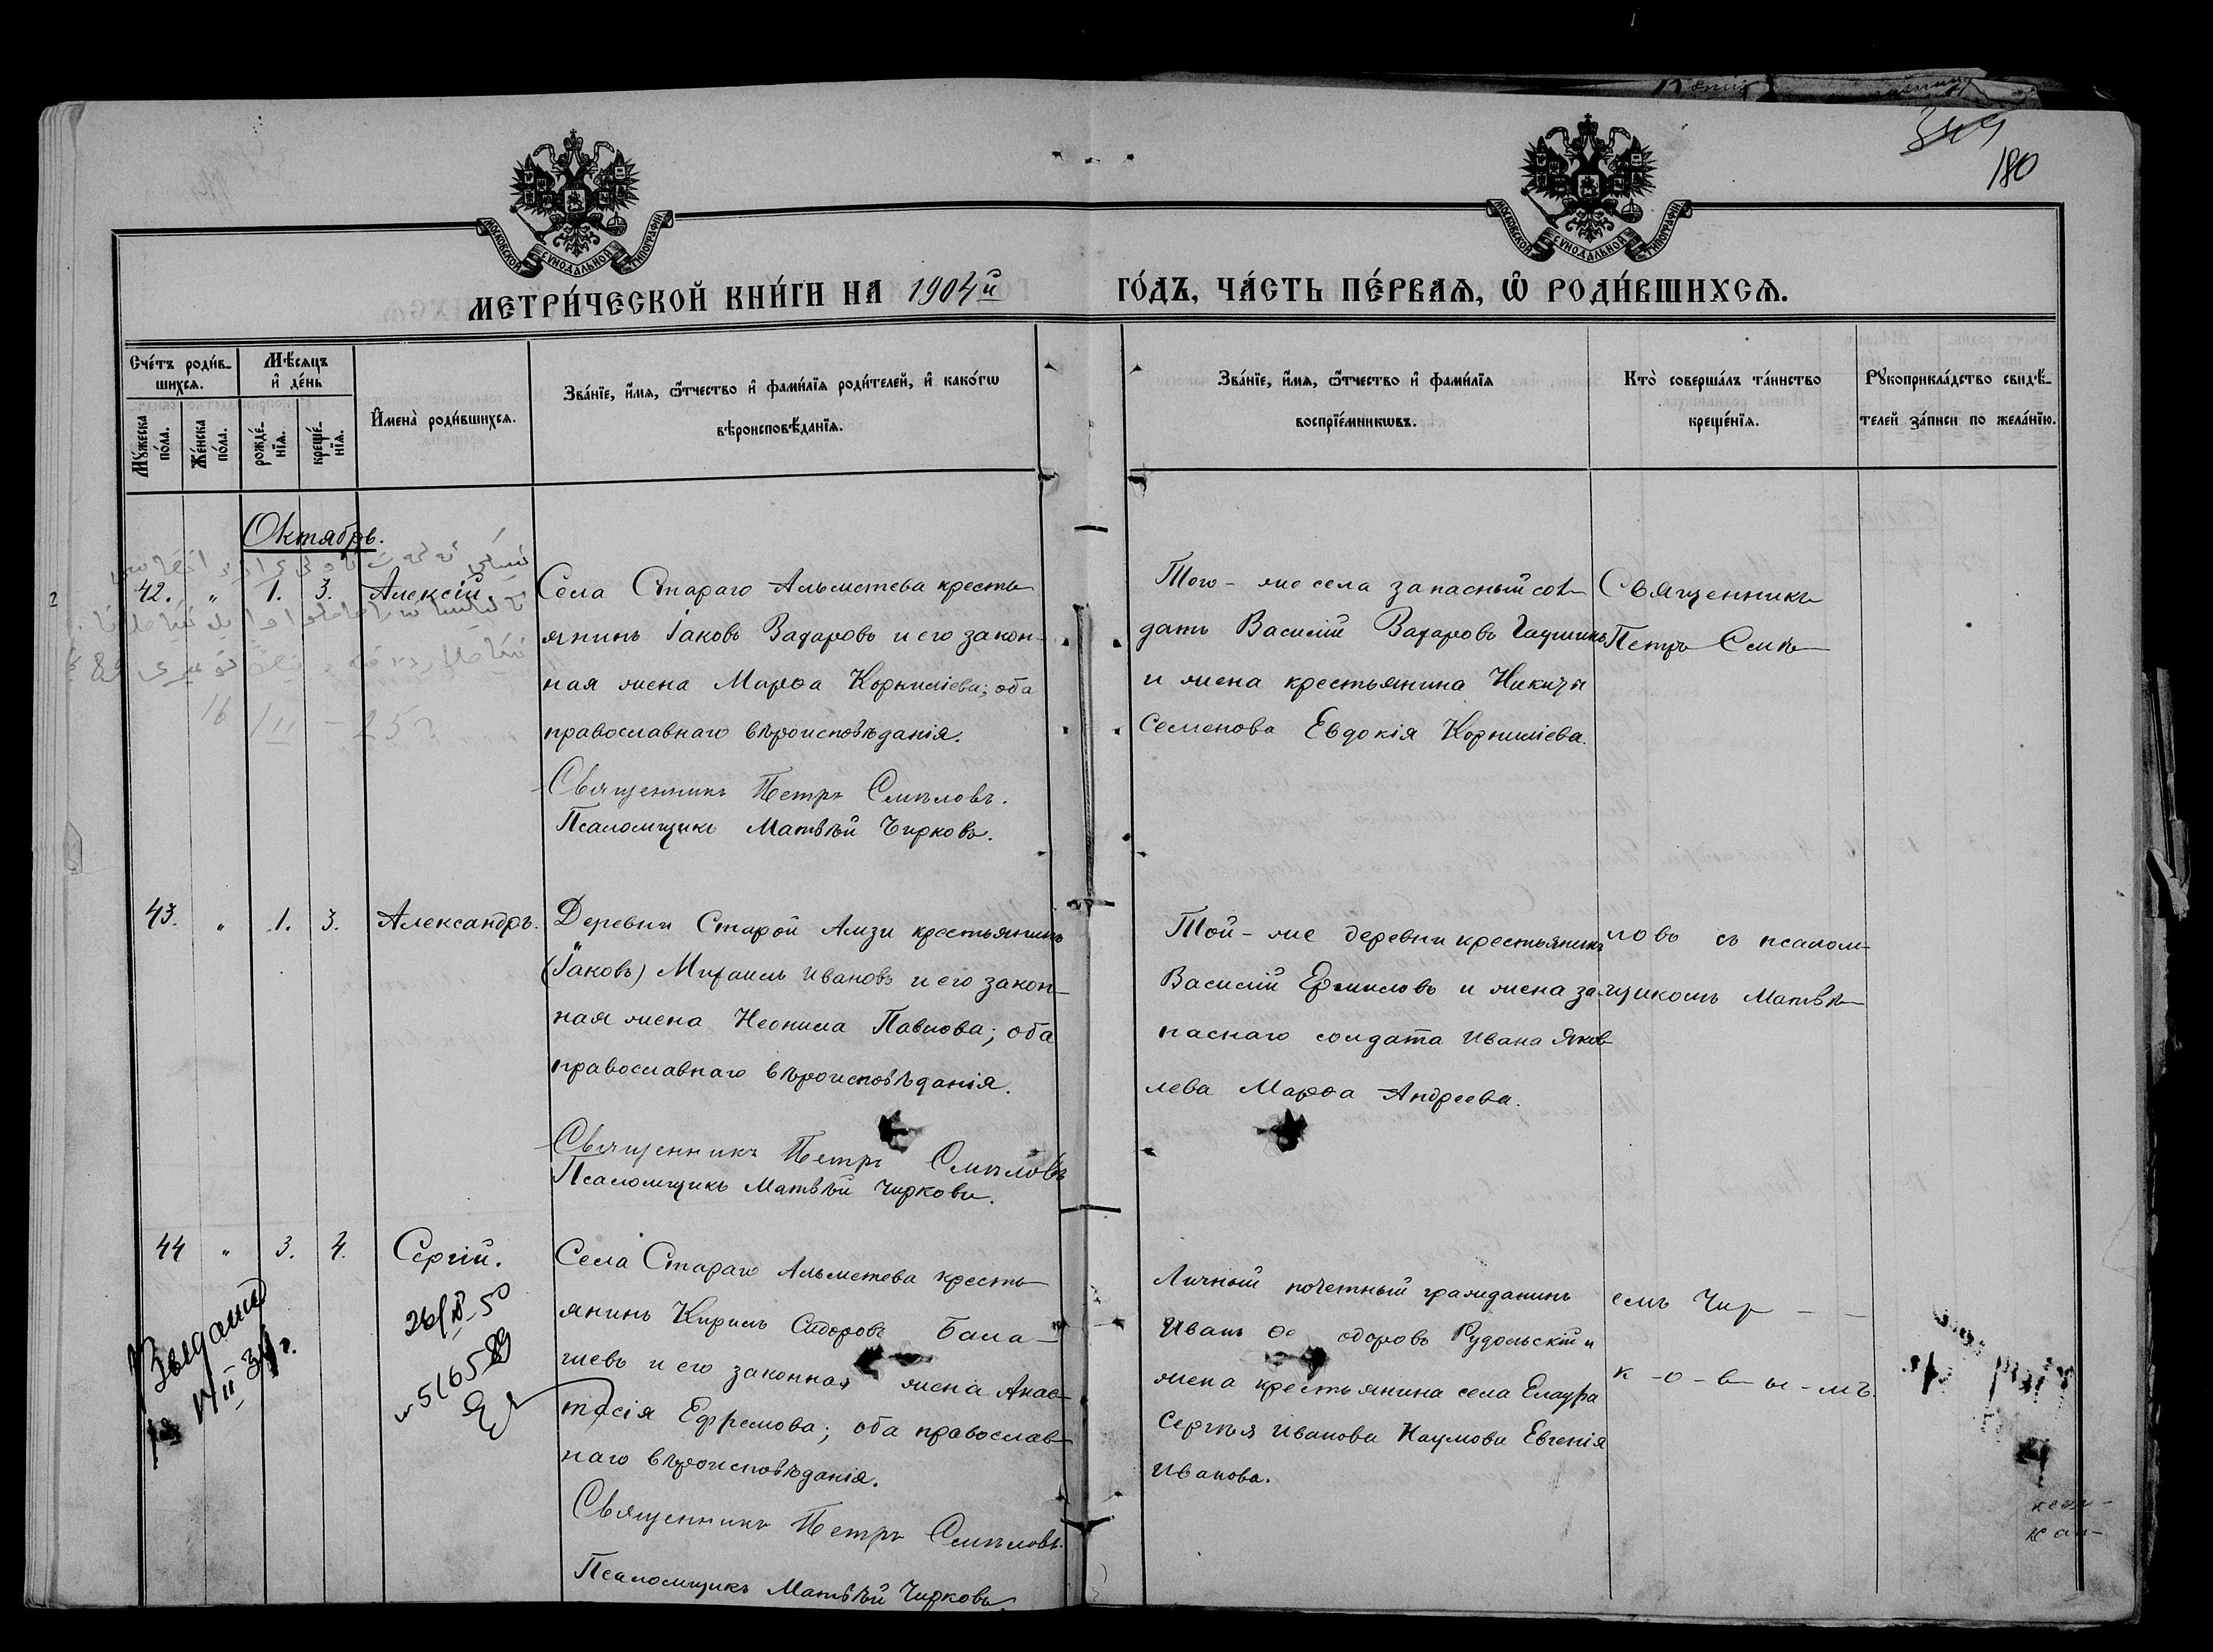 349
180
МОСКОВСКОЙ СѴНОДАЛЬНОЙ ТИПОГРАФІИ
МОСКОВСКОЙ СѴНОДАЛЬНОЙ ТИПОГРАФІИ
МЕТРИ́ЧЕСКОЙ КНИ́ГИ НА 1904й
ГО́ДЪ, ЧА́СТЬ ПЕ́РВАѦ, Ѽ РОДИ́ВШИХСѦ.
Сче́тъ роди́в-
шихсѧ.
Мꙋ́жеска
по́ла.
Же́нска
по́ла.
Мѣ́сѧцъ
и҆ де́нь
рожде́-
нїѧ.
креще́-
нїѧ.
И҆мена̀ роди́вшихсѧ.
Зва́нїе, и҆́мѧ, ѻ҆́тчество и҆ фами́лїѧ роди́телей, и҆ како́гѡ
вѣроисповѣ́данїѧ.
Зва́нїе, и҆́мѧ, ѻ҆́тчество и҆ фами́лїѧ
воспрїе́мникѡвъ.
Кто̀ соверша́лъ та́инство
креще́нїѧ.
Рꙋкоприкла́дство свидѣ́-
телей за́писи по жела́нїю.
Октябрь.
42. " 1. 3. Алексій
Села Стараго Альметева кресть-
янинъ Іаковъ Захаровъ и его закон-
ная жена Марѳа Корниліева; оба
православнаго вѣроисповѣданія.
Священникъ Петръ Смѣловъ.
Псаломщикъ Матвѣй Чирковъ.
Того-же села запасный сол-
датъ Василій Захаровъ
и жена крестьянина Никиты
Семенова Евдокія Корниліева.
Священникъ
Петръ Смѣ-
43. " 1. 3. Александръ.
Деревни Старой Амзи крестьянинъ
(Іаковъ) Михаилъ Ивановъ и его закон-
ная жена Неонила Павлова; оба
православнаго вѣроисповѣданія.
Священникъ Петръ Смѣловъ
Псаломщикъ Матвѣй Чирковъ.
Той-же деревни крестьянинъ
Василій Ермиловъ и жена за-
паснаго солдата Ивана Яков-
лева Марѳа Андреева.
ловъ съ псалом-
щикомъ Матвѣ-
44 " 3. 4. Сергій.
Села Стараго Альметева кресть-
янинъ Кирилъ Сидоровъ Бала-
шевъ и его законная жена Анас-
тасія Ефремова; оба православ-
наго вѣроисповѣданія.
Священникъ Петръ Смѣловъ.
Псаломщикъ Матвѣй Чирковъ.
Личный почетный гражданинъ
Иванъ Ѳеодоровъ Рудольскій и
жена крестьянина села Елаура
Сергѣя Иванова Наумова Евгенія
Иванова.
емъ Чир - -
к-о-в-ы-мъ.